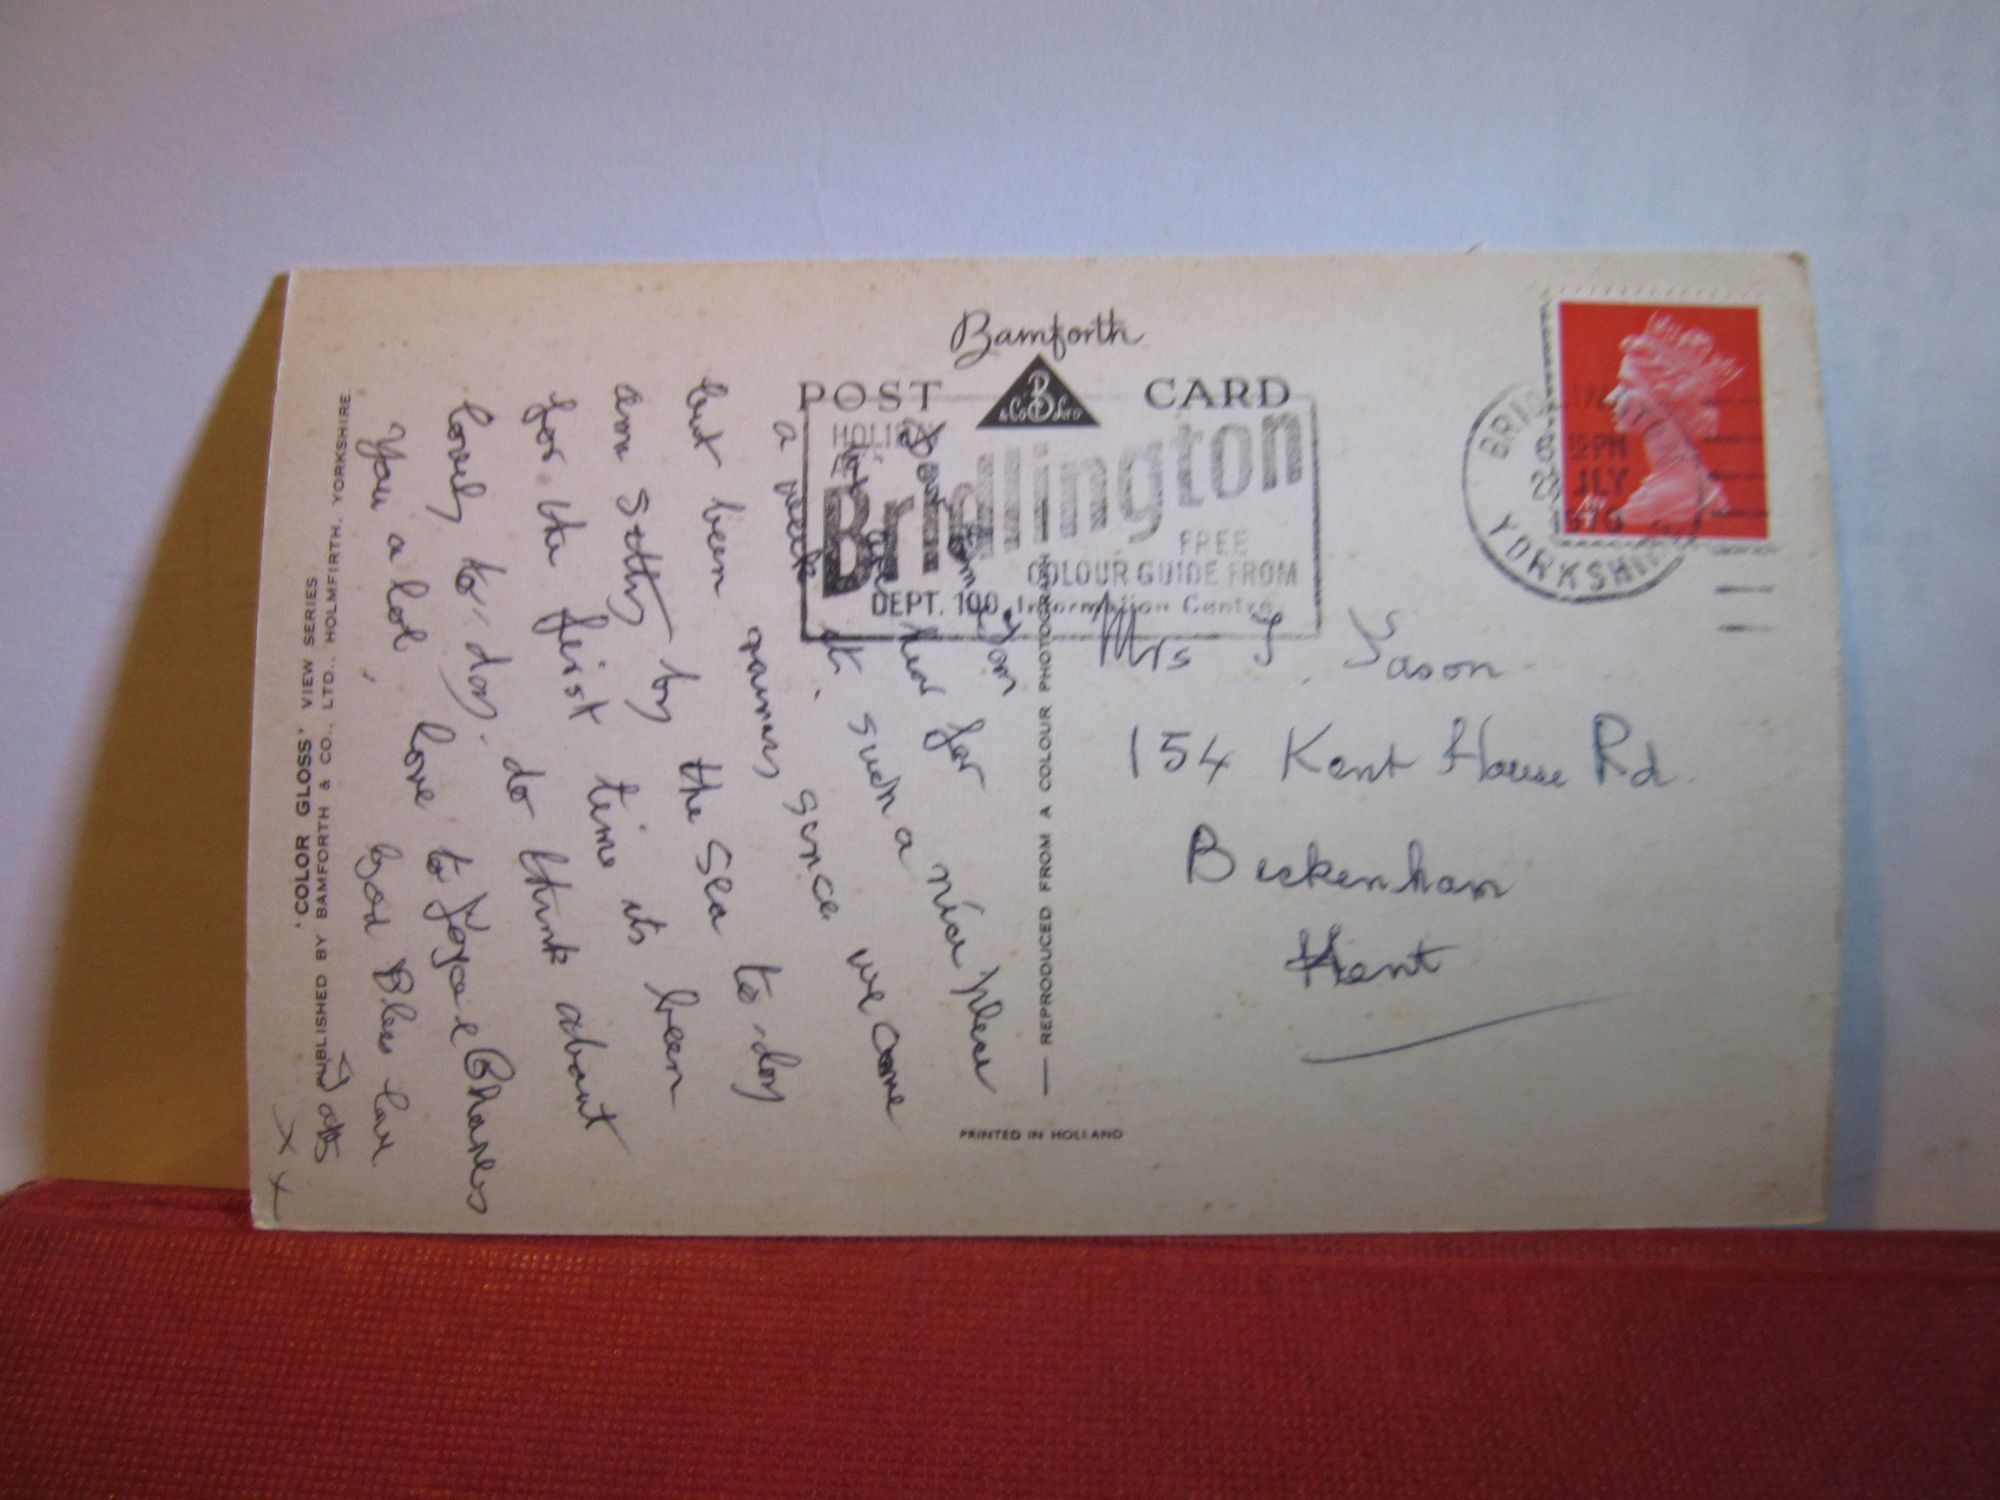 Bamforth
POST CARD
B
& Co Ltd
HOLIDAY
AT
Bridlington
FREE
COLOUR GUIDE FROM
DEPT. 100, Information Centre
BRIDLINGTON
12 PM
JLY
1970
YORKSHIRE
Mrs J. Jason
154 Kent House Rd.
Beckenham
Kent
we are here for
a week it. such a nice place
but been since we come
am setting by the sea to-day
for the first time its been
lovely to-day. do think about
You a lot, love to Joyce & Charles
God Bless love
x x
REPRODUCED FROM A COLOUR PHOTOGRAPH
'COLOR GLOSS' VIEW SERIES
PUBLISHED BY BAMFORTH & CO., LTD., HOLMFIRTH, YORKSHIRE.
PRINTED IN HOLLAND